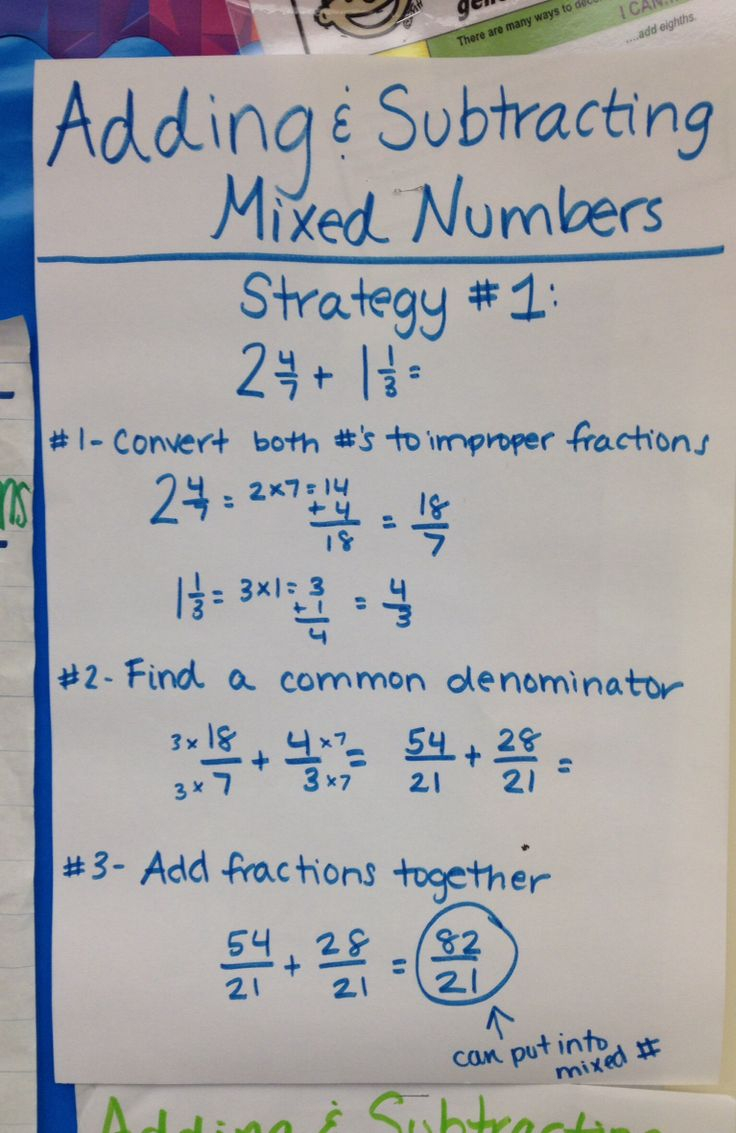 gen
There are many ways to
I CAN...
....add eighths.
Adding & Subtracting
Mixed Numbers
Strategy #1:
2 4/7 + 1 1/3 =
#1- Convert both #'s to improper fractions
2 4/7 = 2x7=14 +4 18 = 18/7
1 1/3 = 3x1= 3 +1 4 = 4/3
#2- Find a common denominator
3x 18 / 3x 7 + 4 x7 / 3 x7 = 54/21 + 28/21 =
#3- Add fractions together
54/21 + 28/21 = 82/21
can put into
mixed #
ns
Adding & Subtracting